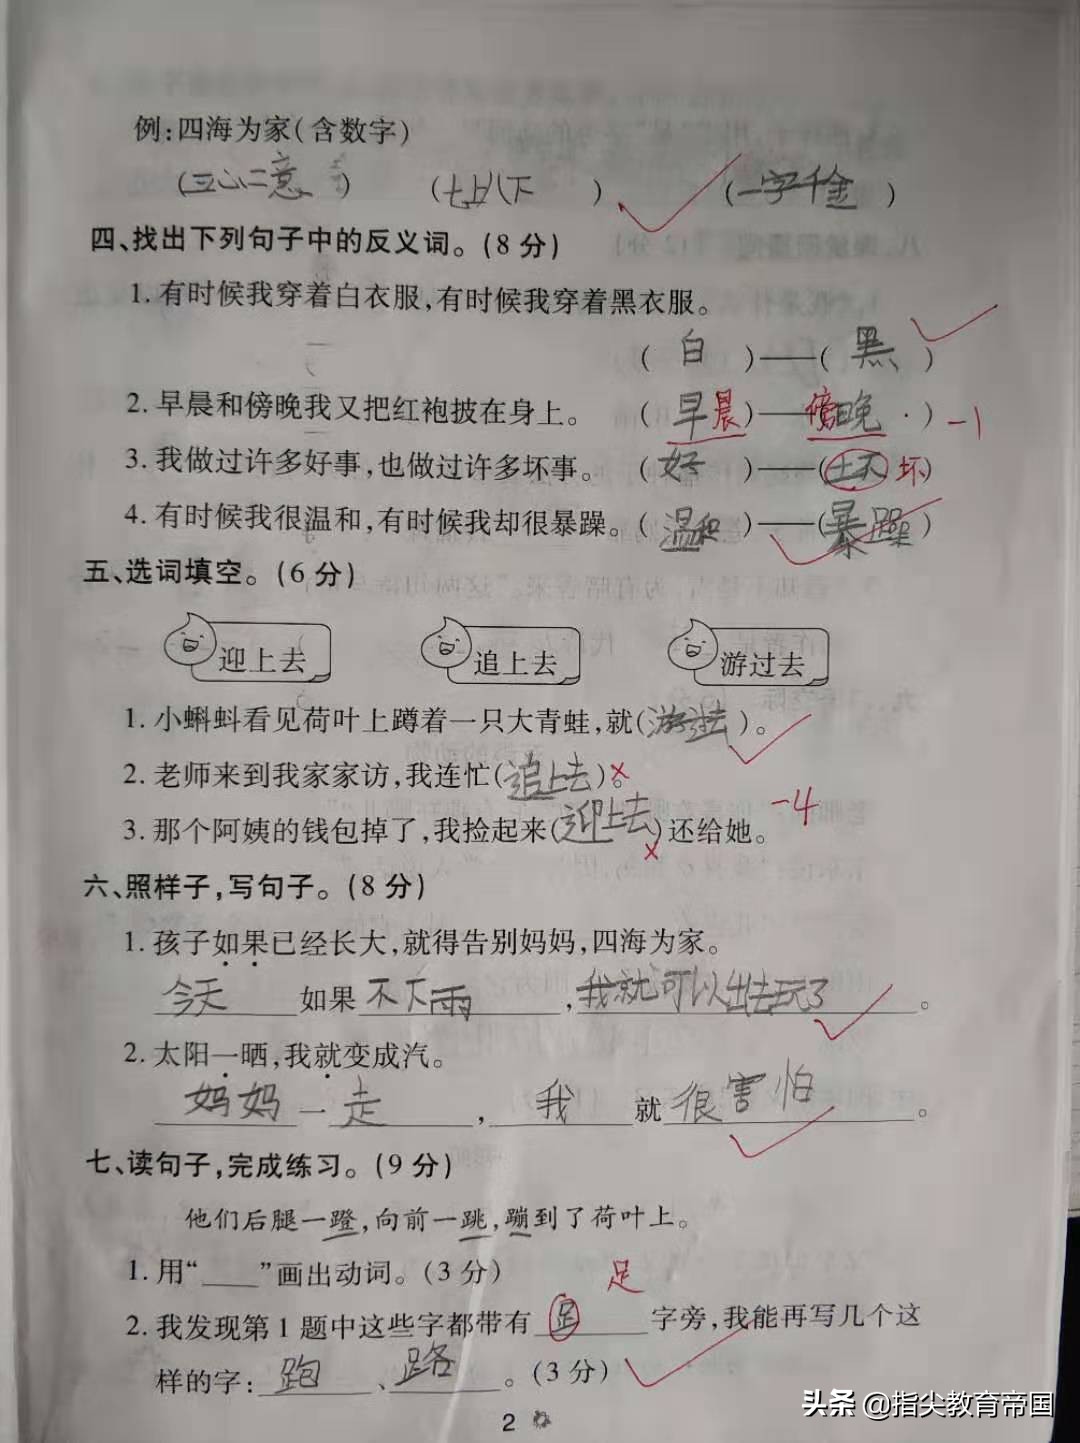 例:四海为家(含数字)
(三心二意) (七上八下) (一字千金)
四、找出下列句子中的反义词。(8分)
1.有时候我穿着白衣服,有时候我穿着黑衣服。
(白)——(黑)
2.早晨和傍晚我又把红袍披在身上。(早晨)——(傍晚) -1
3.我做过许多好事,也做过许多坏事。(好)——(坏) 坏
4.有时候我很温和,有时候我却很暴躁。(温和)——(暴躁)
五、选词填空。(6分)
迎上去 追上去 游过去
1.小蝌蚪看见荷叶上蹲着一只大青蛙,就(游过去)。
2.老师来到我家家访,我连忙(追上去)。
3.那个阿姨的钱包掉了,我捡起来(迎上去)还给她。 -4
六、照样子,写句子。(8分)
1.孩子如果已经长大,就得告别妈妈,四海为家。
今天如果不下雨,我就可以出去玩了。
2.太阳一晒,我就变成汽。
妈妈一走,我就很害怕。
七、读句子,完成练习。(9分)
他们后腿一蹬,向前一跳,蹦到了荷叶上。
1.用“___”画出动词。(3分)
足
2.我发现第1题中这些字都带有足字旁,我能再写几个这
样的字:跑、路。(3分)
2
头条@指尖教育帝国